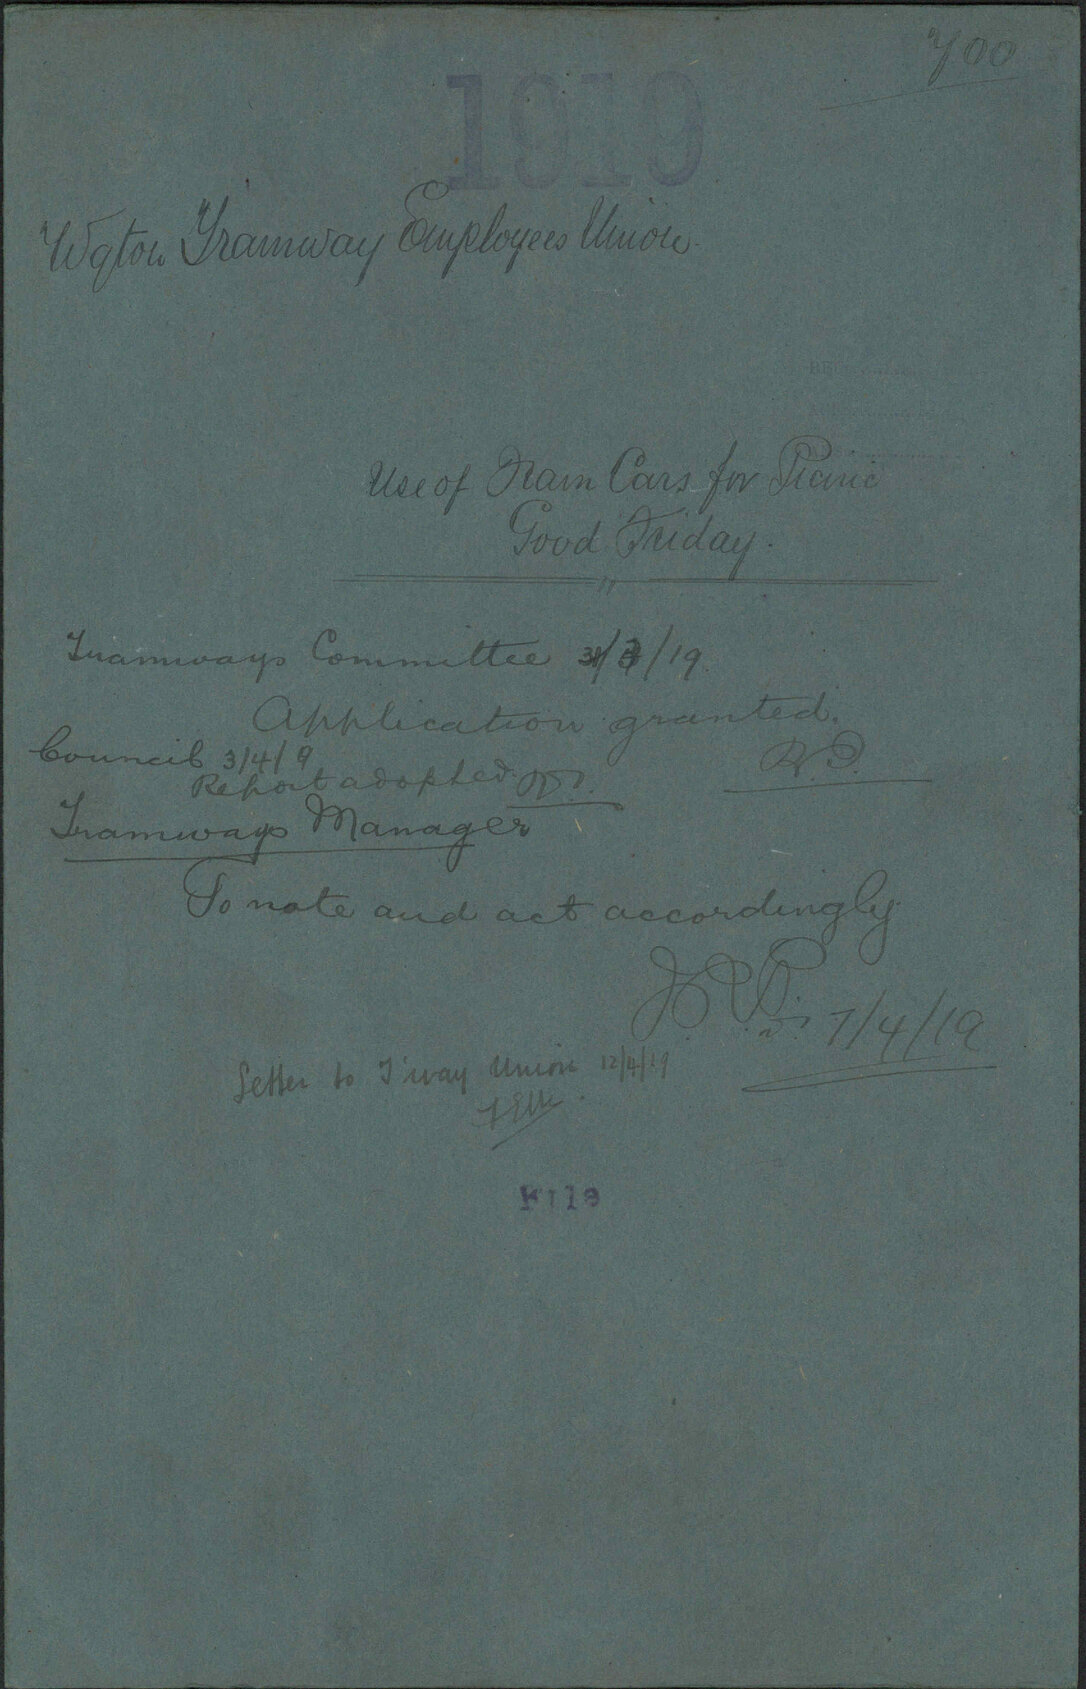 700
1919
Wgton Tramway Employees Union.
Use of Tram Cars for Picnic
Good Friday.
Tramways Committee 31/3/19
Application granted.
Council 3/4/9
Report adopted
Tramways Manager
To note and act accordingly
7/4/19
Letter to T'way Union 12/4/19
File